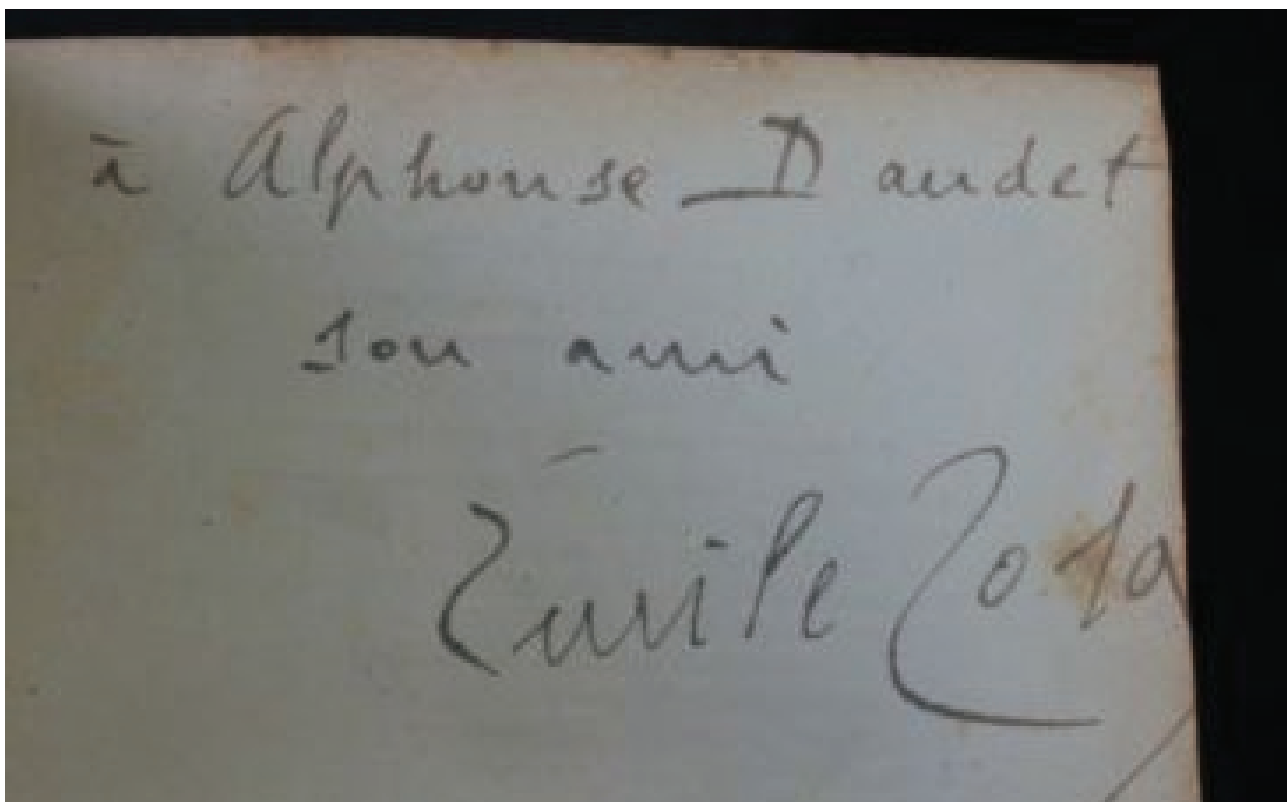 à Alphonse Daudet
son ami
Émile Zola